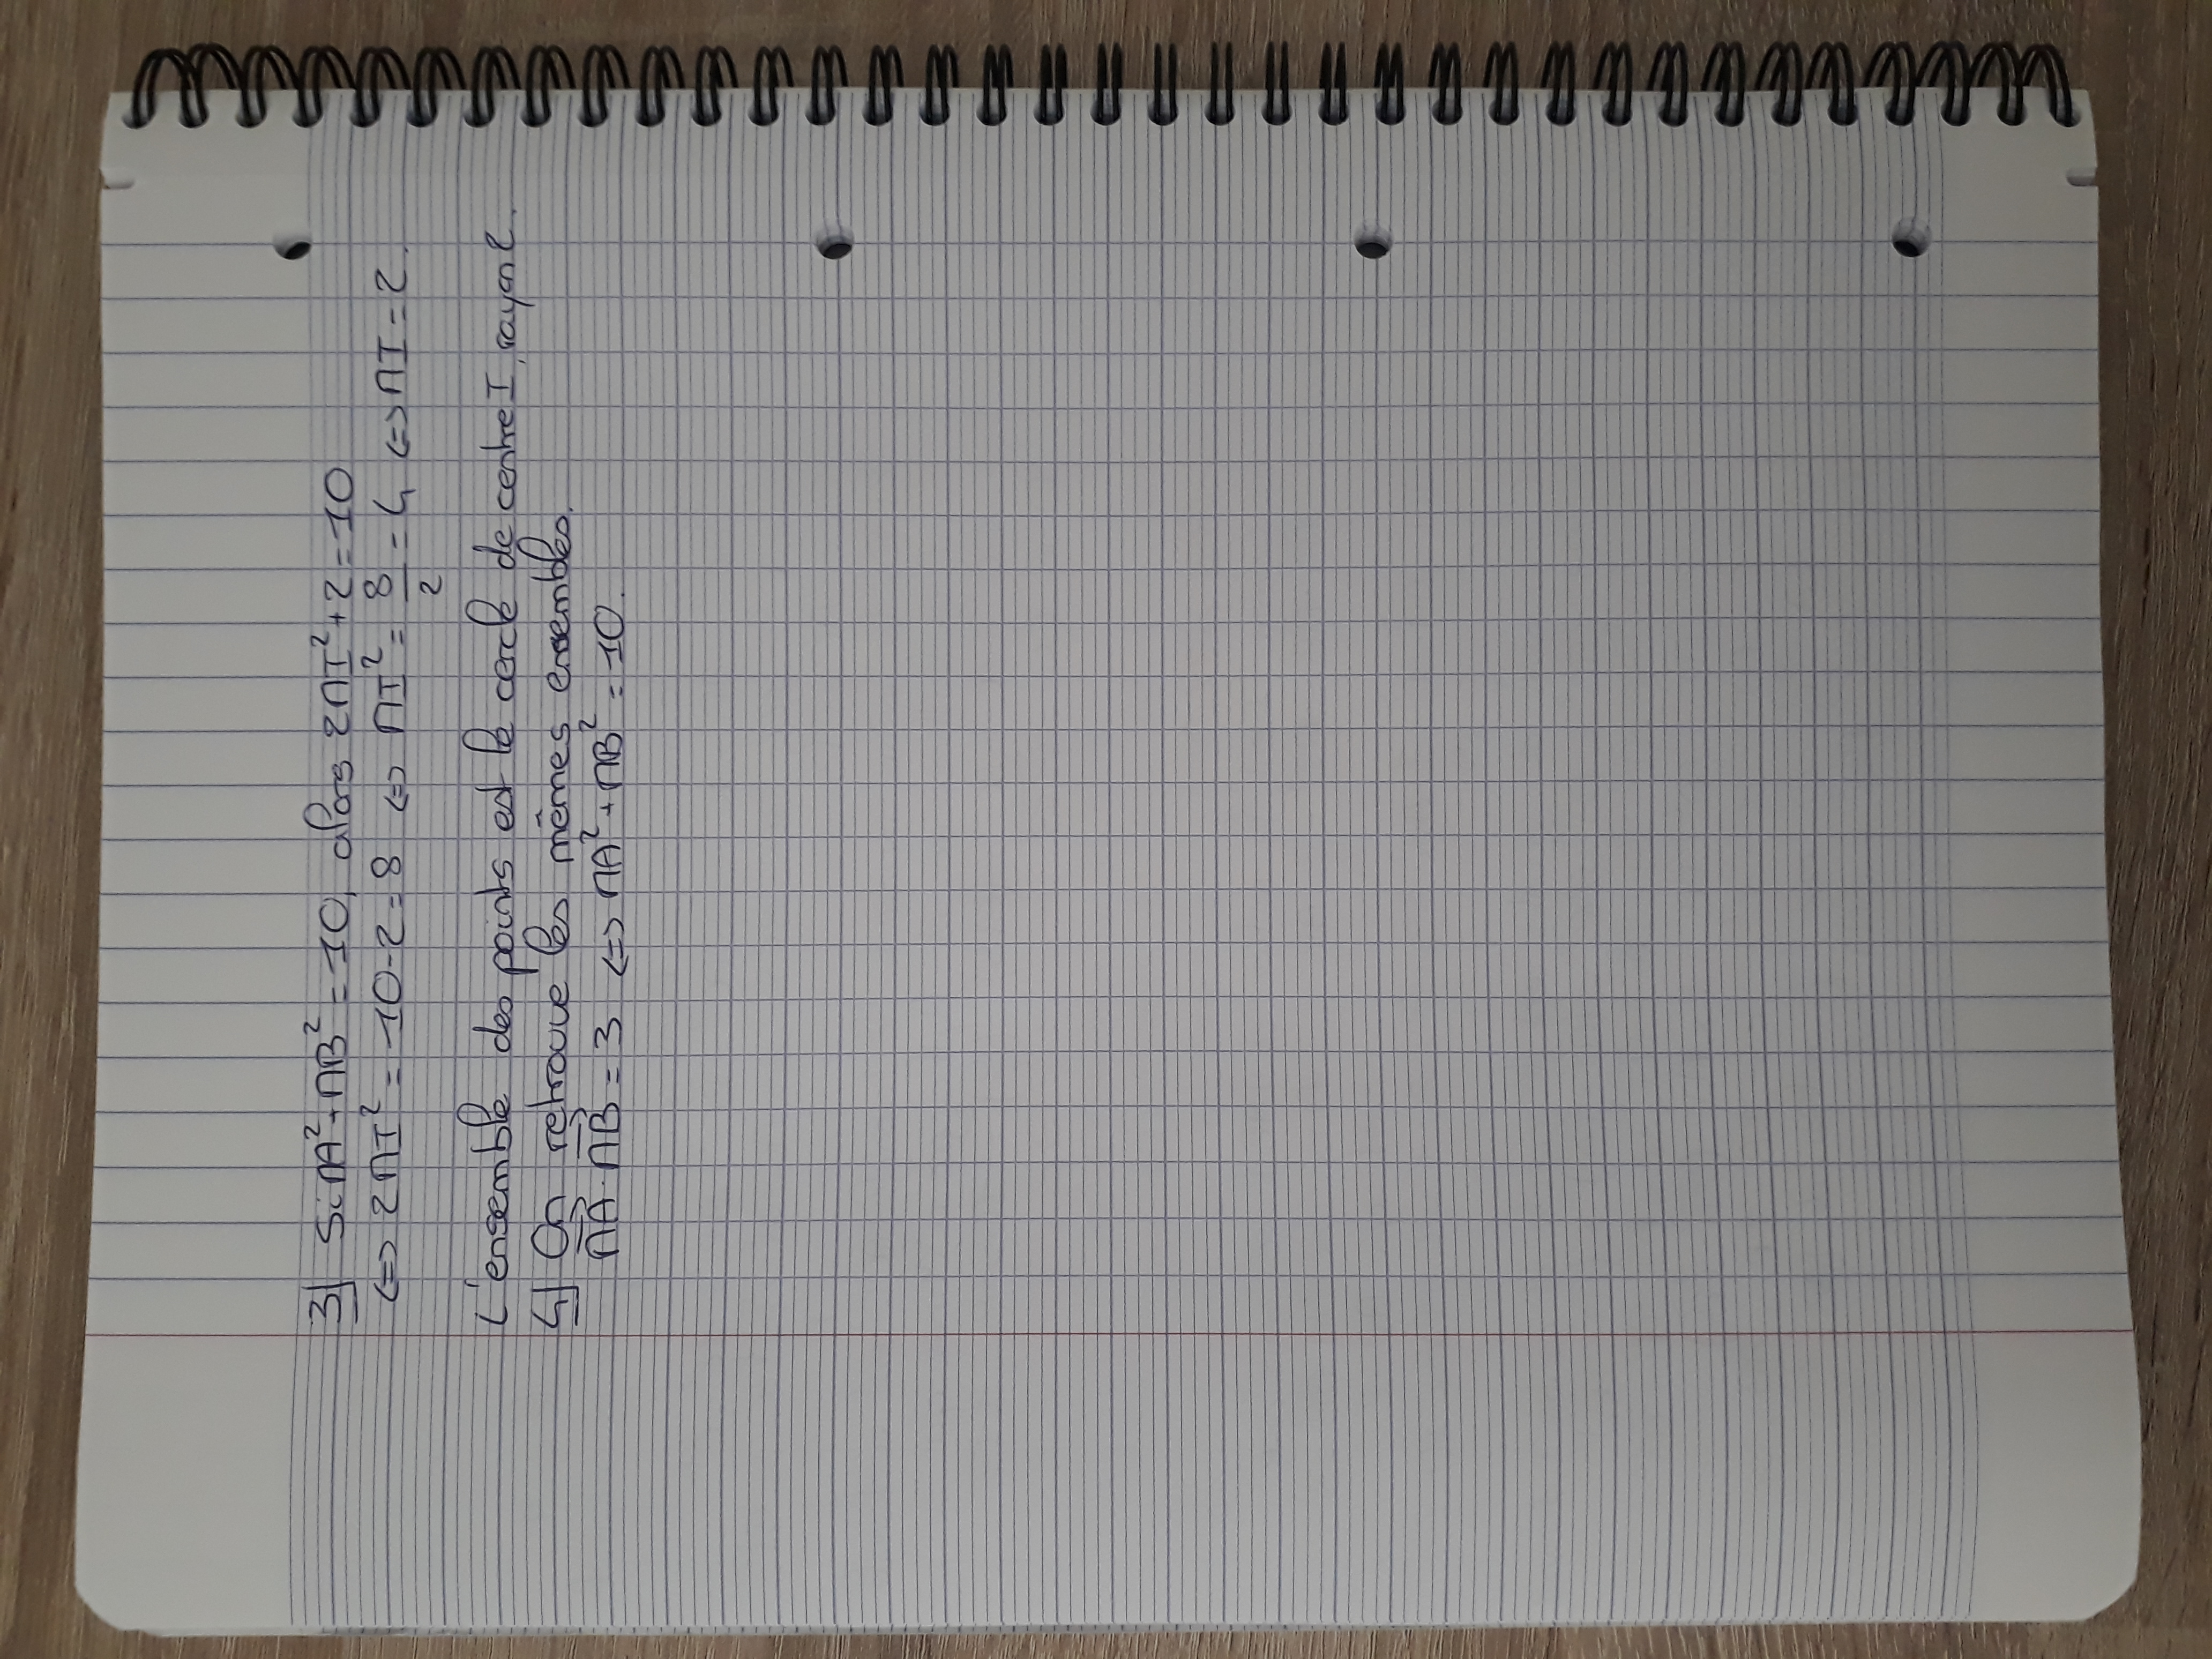 3] Si MA² + MB² = 10, alors 2MI² + 2 = 10
<=> 2MI² = 10 - 2 = 8 <=> MI² = 8/2 = 4 <=> MI = 2.
L'ensemble des points est le cercle de centre I, rayon 2.
4] On retrouve les mêmes ensembles.
→MA · →MB = 3 <=> MA² + MB² = 10.